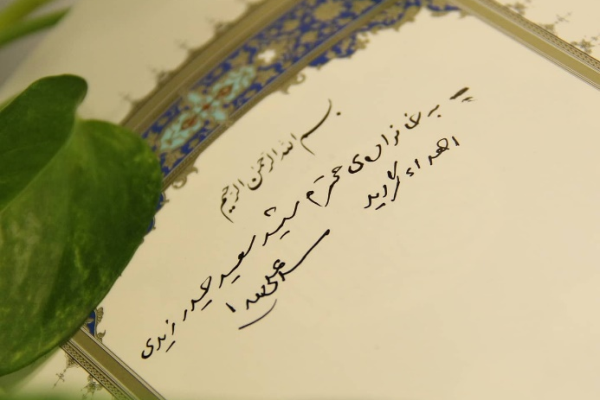 بسم الله الرحمن الرحیم
به خانواده‌ی محترم شهید سعید حیدر زیدی
اهداء گردید
سید علی خامنه‌ای